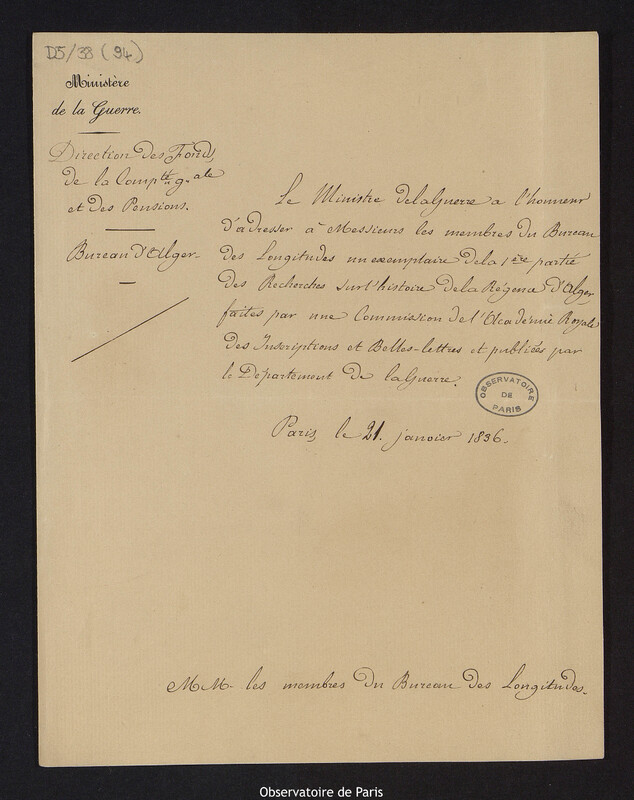 D5/38 (94)
Ministère
de la Guerre.
Direction des Fonds
de la Compt.té g.ale
et des Pensions.
Bureau d'Alger.
Le Ministre de la Guerre a l'honneur
d'adresser à Messieurs les membres du Bureau
des Longitudes un exemplaire de la 1ère partie
des Recherches sur l'histoire de la Régence d'Alger
faites par une Commission de l'Académie Royale
des Inscriptions et Belles-lettres et publiées par
le Département de la Guerre.
OBSERVATOIRE
DE
PARIS
Paris, le 21. janvier 1836.
MM. les membres du Bureau des Longitudes.
Observatoire de Paris